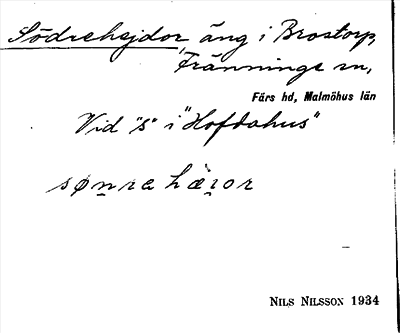 Södrehejdor, äng i Brostorp,
Tranninge sn,
Färs hd, Malmöhus län
Vid "s" i "Hofdahus"
NILS NILSSON 1934